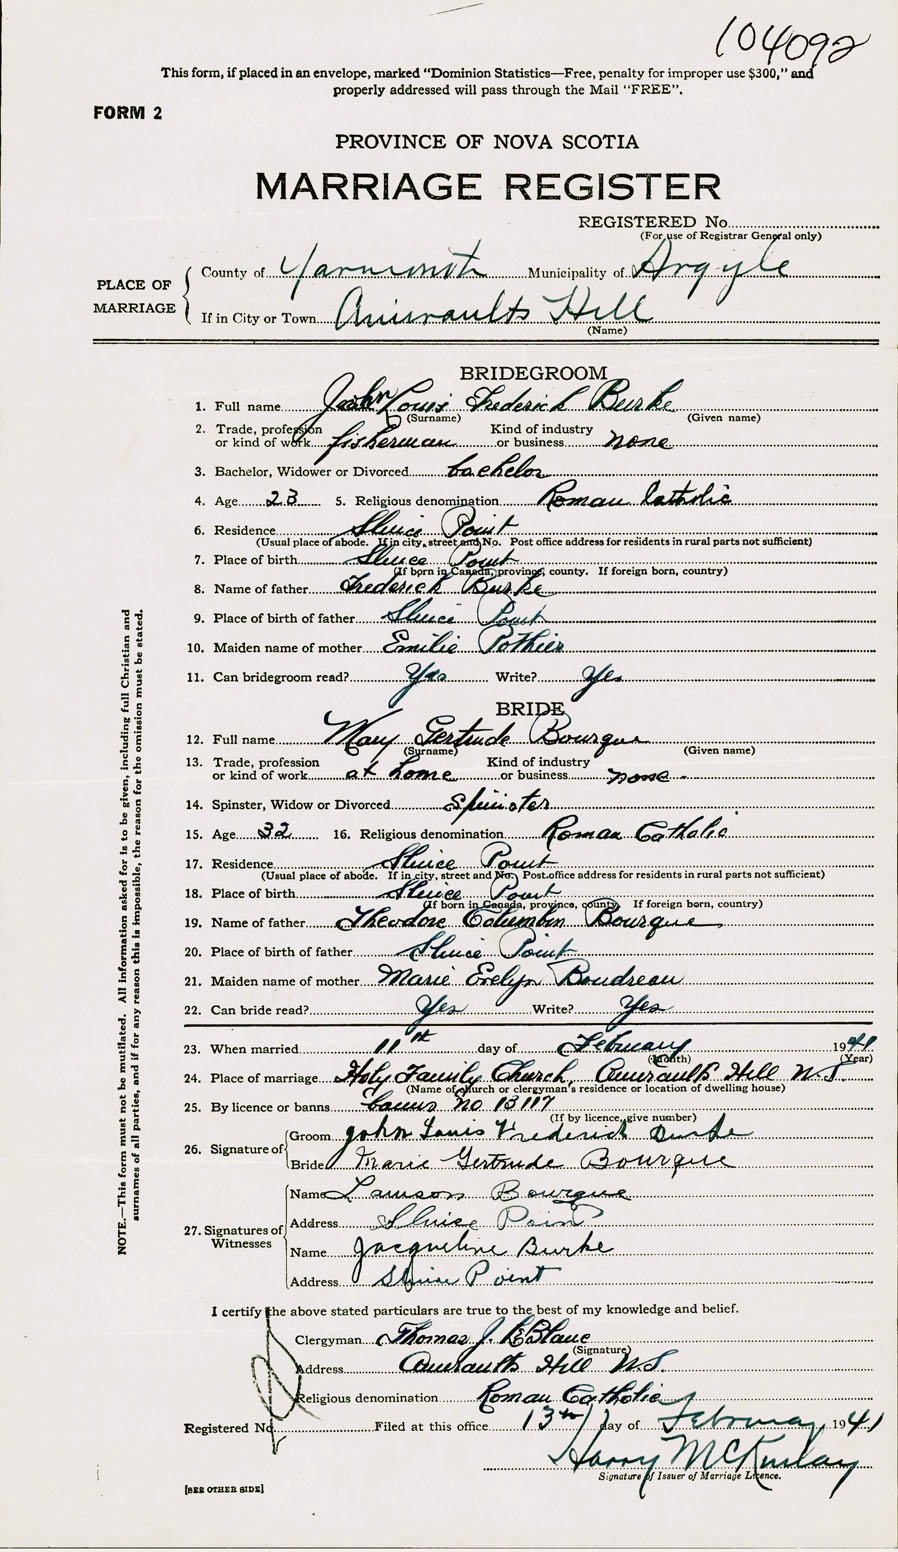 104092
This form, if placed in an envelope, marked "Dominion Statistics—Free, penalty for improper use $300," and
properly addressed will pass through the Mail "FREE".
FORM 2
PROVINCE OF NOVA SCOTIA
MARRIAGE REGISTER
REGISTERED No.
(For use of Registrar General only)
PLACE OF MARRIAGE
County of Yarmouth Municipality of Argyle
If in City or Town Amiraults Hill
(Name)
BRIDEGROOM
1. Full name John Louis Frederick Burke
(Surname) (Given name)
2. Trade, profession or kind of work fisherman Kind of industry or business none
3. Bachelor, Widower or Divorced bachelor
4. Age 23 5. Religious denomination Roman Catholic
6. Residence Sluice Point
(Usual place of abode. If in city, street and No. Post office address for residents in rural parts not sufficient)
7. Place of birth Sluice Point
(If born in Canada, province, county. If foreign born, country)
8. Name of father Frederick Burke
9. Place of birth of father Sluice Point
10. Maiden name of mother Emilie Pothier
11. Can bridegroom read? Yes Write? Yes
BRIDE
12. Full name Mary Gertrude Bourque
(Surname) (Given name)
13. Trade, profession or kind of work at home Kind of industry or business none
14. Spinster, Widow or Divorced Spinster
15. Age 32 16. Religious denomination Roman Catholic
17. Residence Sluice Point
(Usual place of abode. If in city, street and No. Post office address for residents in rural parts not sufficient)
18. Place of birth Sluice Point
(If born in Canada, province, county. If foreign born, country)
19. Name of father Theodore Columbin Bourque
20. Place of birth of father Sluice Point
21. Maiden name of mother Marie Evelyn Boudreau
22. Can bride read? Yes Write? Yes
23. When married 11th day of February 1941
(Month) (Year)
24. Place of marriage Holy Family Church, Amiraults Hill N.S.
(Name of church or clergyman's residence or location of dwelling house)
25. By licence or banns banns no 13117
(If by licence, give number)
26. Signature of
Groom John Louis Frederick Burke
Bride Marie Gertrude Bourque
27. Signatures of Witnesses
Name Lawson Bourque
Address Sluice Point
Name Jacqueline Burke
Address Sluice Point
I certify the above stated particulars are true to the best of my knowledge and belief.
Clergyman Thomas J. LeBlanc
(Signature)
Address Amiraults Hill N.S.
Religious denomination Roman Catholic
Registered No. Filed at this office 13th day of February, 1941
Harry McKinlay
Signature of Issuer of Marriage Licence.
[SEE OTHER SIDE]
NOTE.—This form must not be mutilated. All information asked for is to be given, including full Christian and
surnames of all parties, and if for any reason this is impossible, the reason for the omission must be stated.